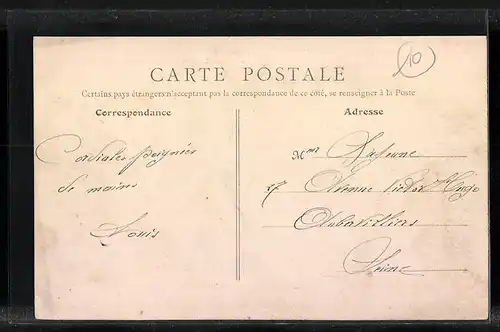 10
CARTE POSTALE
Certains pays étrangers n'acceptant pas la correspondance de ce côté, se renseigner à la Poste
Correspondance
Adresse
Cordiales poignées
de mains
Louis
Mme Lajeune
27 Avenue Victor Hugo
Aubervilliers
Seine